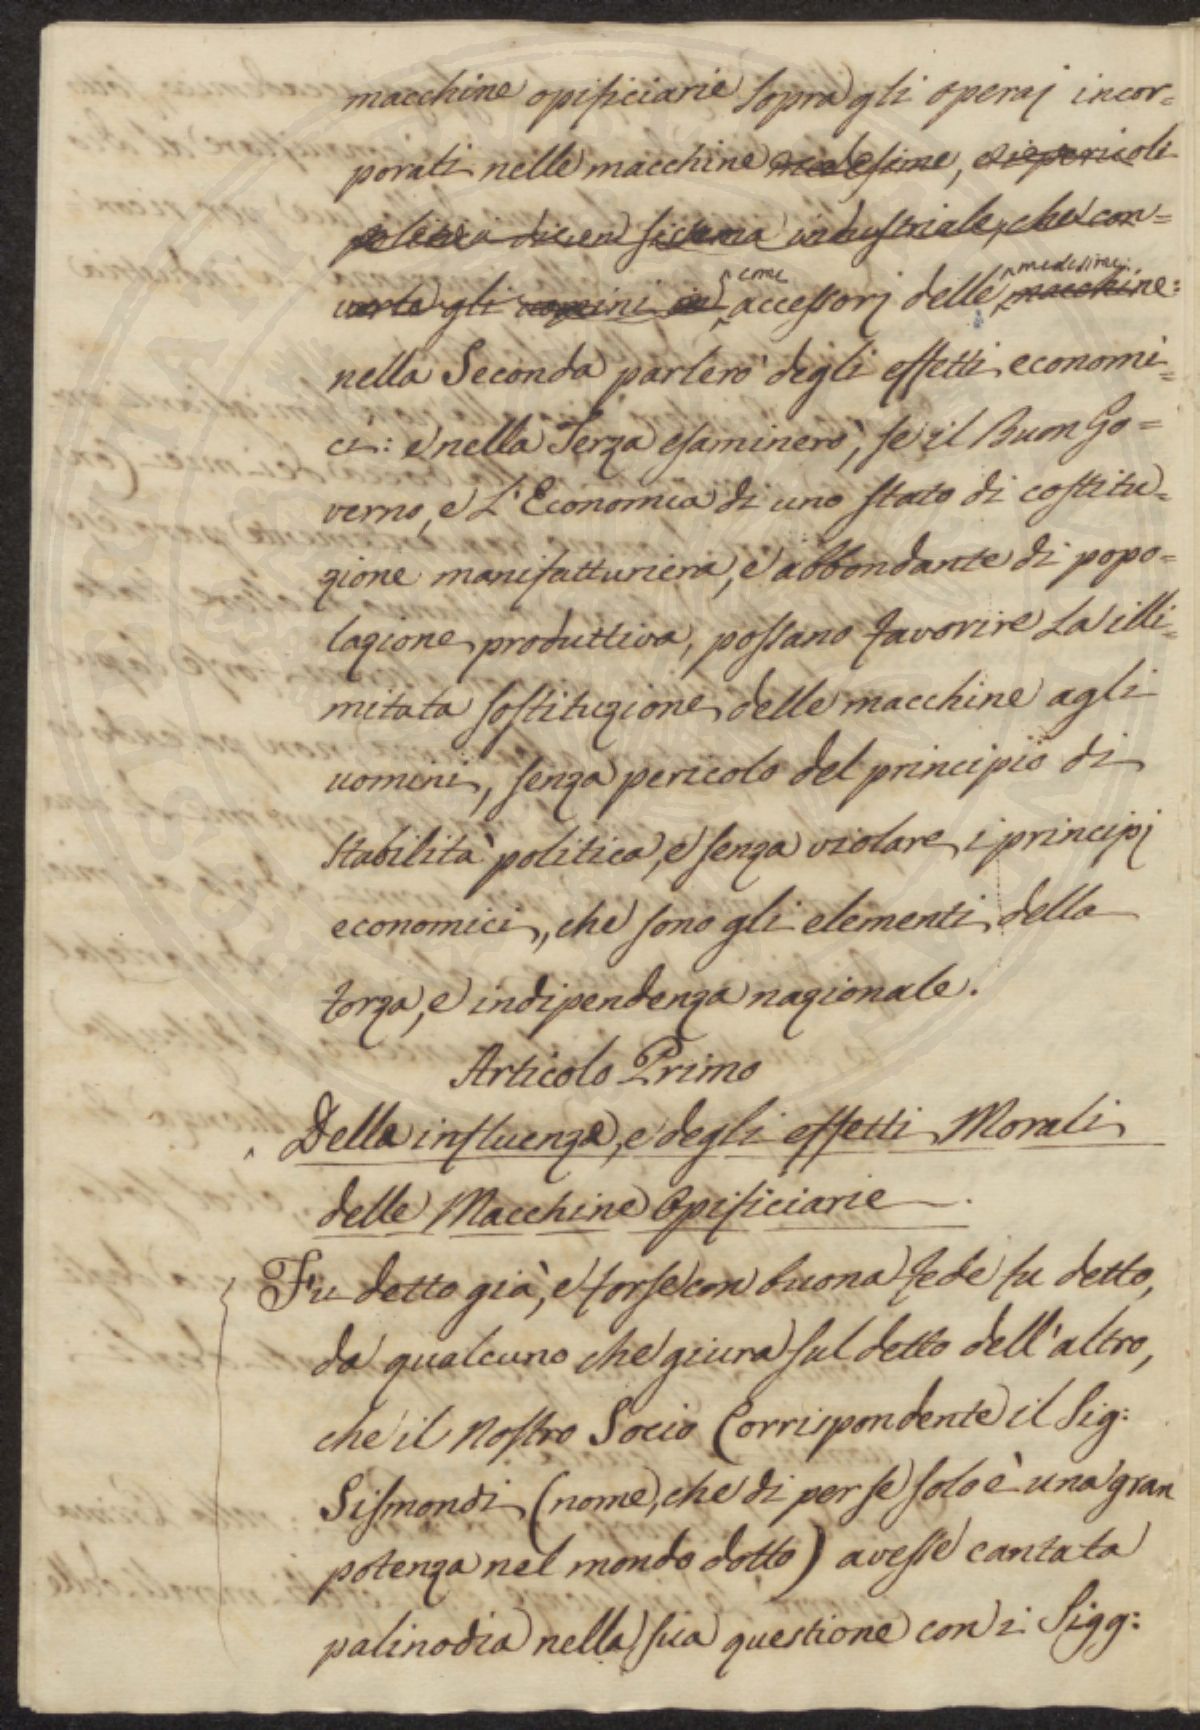 macchine opificiarie sopra gli operaj incor=
porati nelle macchine medesime, e i pericoli
politici di un sistema industriale, che con=
verte gli uomini in come accessorj delle medesime macchine:
nella Seconda parlerò degli effetti economi=
ci: e nella Terza esaminerò, se il Buon Go=
verno, e L'Economia di uno stato di costitu=
zione manifatturiera, e abbondante di popo=
lazione produttiva, possano favorire La illi=
mitata sostituzione delle macchine agli
uomini, senza pericolo del principio di
stabilità politica, e senza violare i principj
economici, che sono gli elementi della
forza, e indipendenza nazionale.
Articolo Primo
Della influenza, e degli effetti Morali
delle Macchine Opificiarie
Fu detto già, e forse con buona fede fu detto,
da qualcuno che giura sul detto dell'altro,
che il nostro Socio Corrispondente il Sig:
Sismondi (nome, che di per se solo è una gran
potenza nel mondo dotto) avesse cantata
palinodia nella sua questione con i Sigg: